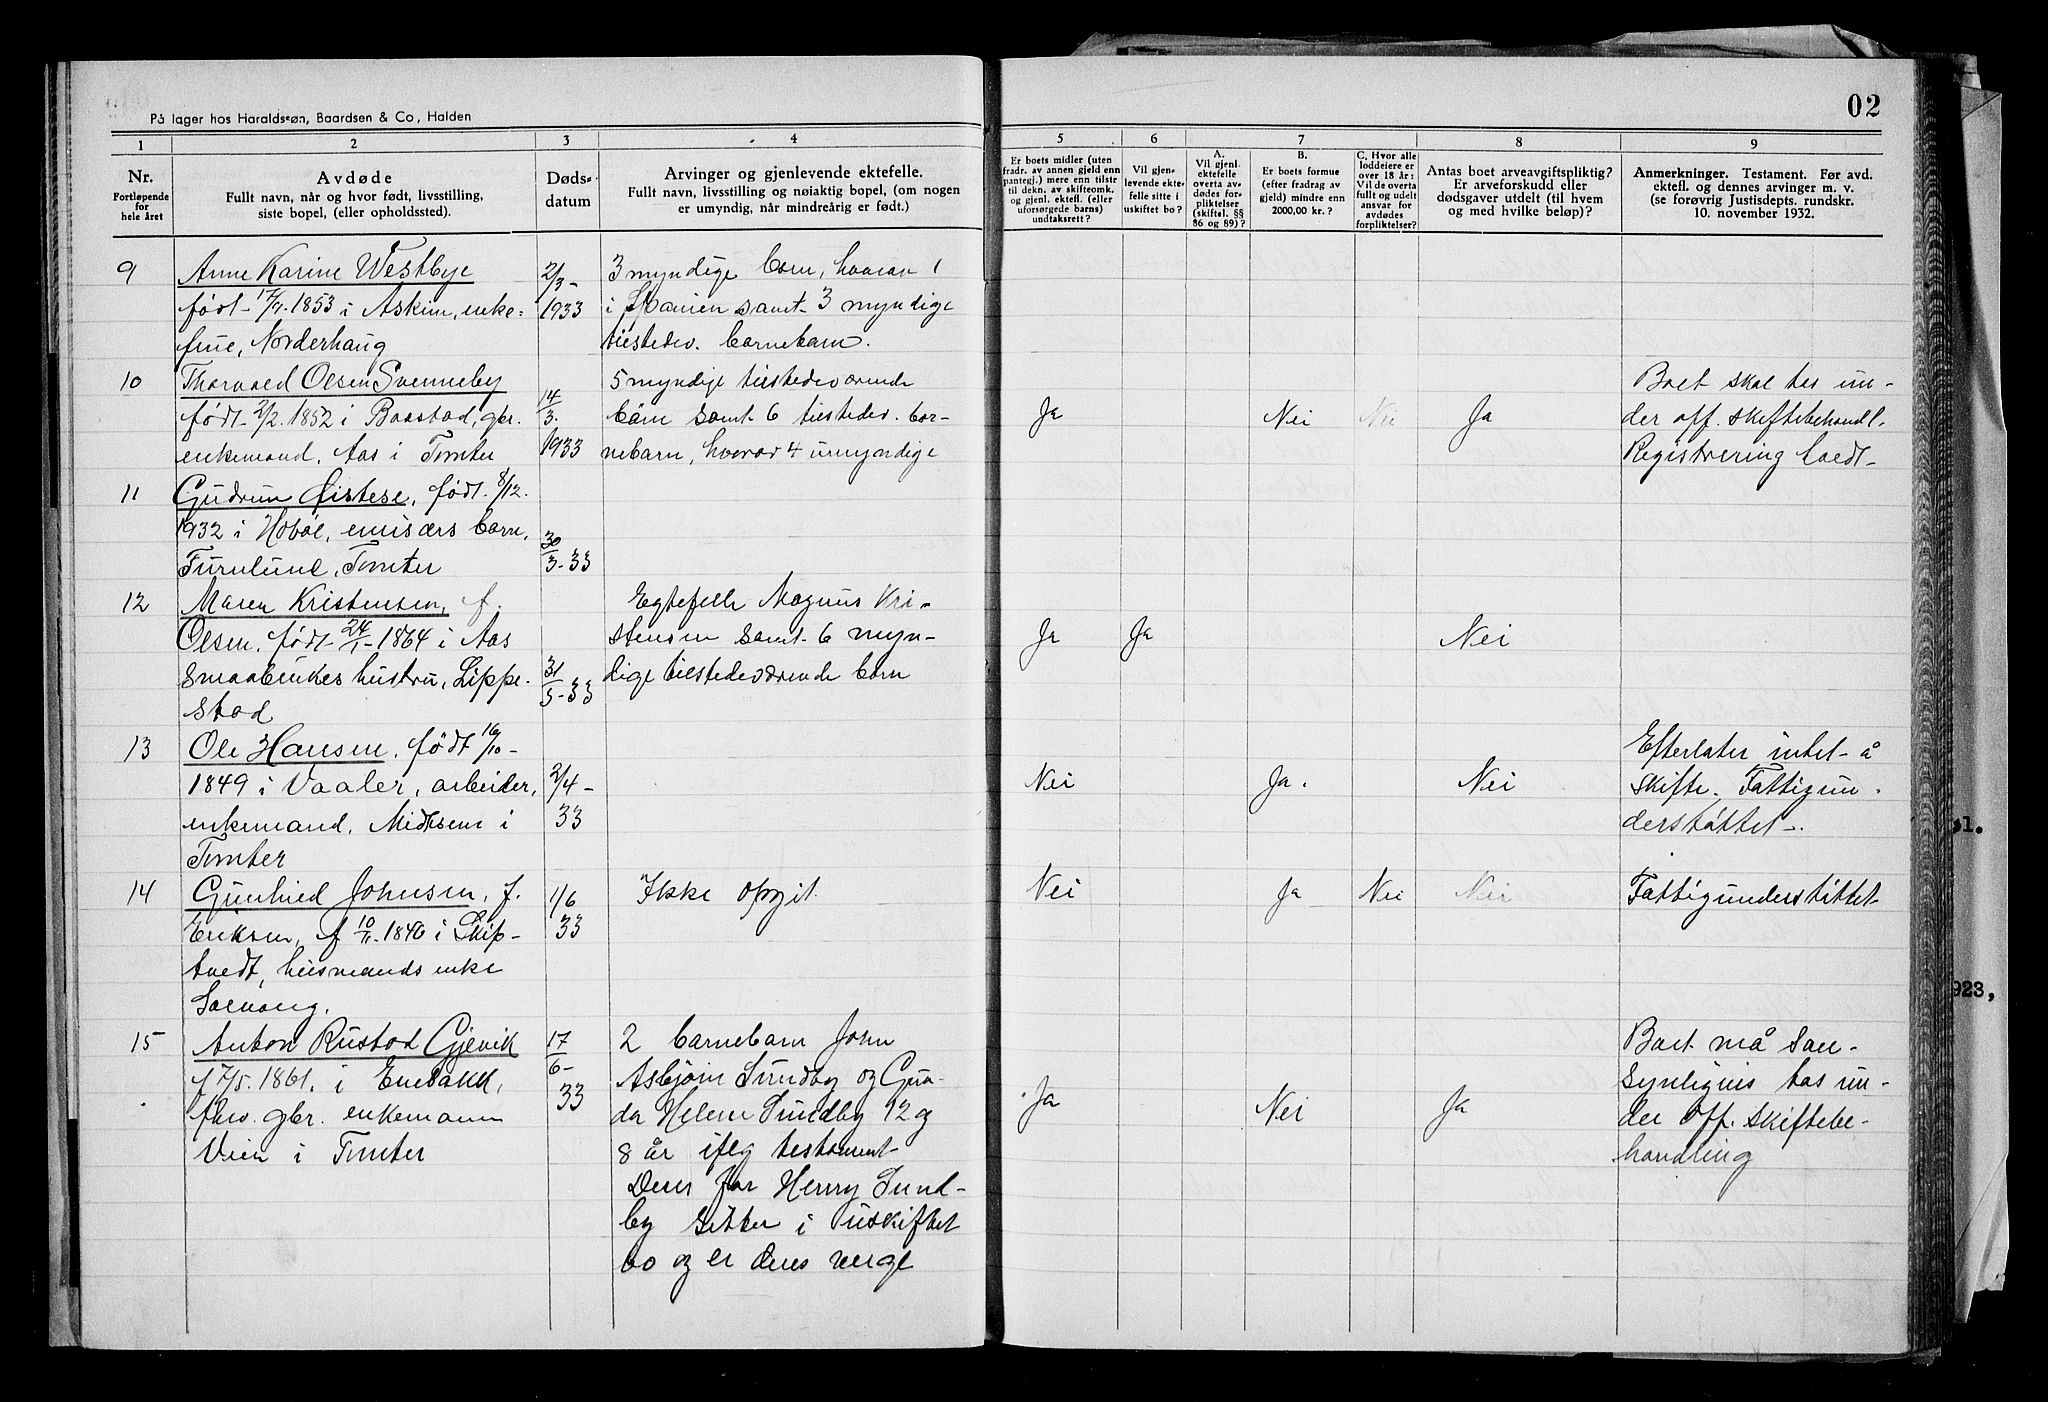 02
På lager hos Haraldssøn, Baardsen & Co, Halden
1 2 3 4 5 6 7 8 9
Nr.
Fortløpende
for
hele året
Avdøde
Fullt navn, når og hvor født, livsstilling,
siste bopel, (eller opholdssted).
Døds-
datum
Arvinger og gjenlevende ektefelle.
Fullt navn, livsstilling og nøiaktig bopel, (om nogen
er umyndig, når mindreårig er født.)
Er boets midler (uten
fradr. av annen gjeld enn
pantegj.) mere enn tilstr
til dekn. av skifteomk.
og gjenl. ektefl. (eller
uforsørgede barns)
undtaksrett?
Vil gjen-
levende ekte-
felle sitte i
uskiftet bo?
A.
Vil gjenl.
ektefelle
overta av-
dødes for-
pliktelser
(skiftel. §§
86 og 89)?
B.
Er boets formue
(efter fradrag av
gjeld) mindre enn
2000,00 kr.?
C. Hvor alle
loddeiere er
over 18 år:
Vil de overta
fullt og udelt
ansvar for
avdødes
forpliktelser?
Antas boet arveavgiftspliktig?
Er arveforskudd eller
dødsgaver utdelt (til hvem
og med hvilke beløp)?
Anmerkninger. Testament. Før avd.
ektefl. og dennes arvinger m. v.
(se forøvrig Justisdepts. rundskr.
10. november 1932.
9
Anne Karine Westbye
født 17/11.1853 i Askim, enke-
frue, Norderhaug
2/3-
1933
3 myndige barn, hvorav 1
i Spanien samt 3 myndige
tilstedev. barnebarn.
10
Thorvald Olsen Svenneby
født 2/2.1852 i Baastad, gbr.
enkemand, Aas i Tomter
14
3.
1933
5 myndige tilstedeværende
barn samt 6 tilstedev. bar-
nebarn, hvorav 4 umyndige
Ja Nei Nei Ja
Boet skal tas un-
der off. skiftebehandl.
Registrering holdt
11
Gudrun Øistese, født 8/12.
1932 i Hobøl, emisærs barn,
Furulund, Tomter
30
3-33
12
Maren Kristensen, f.
Olsen, født 24/1-1864 i Aas
smaabrukes hustru, Lippe-
stad
31
3-33
Egtefelle Magnus Kri-
stensen samt 6 myn-
dige tilstedeværende barn
Ja Ja Nei
13
Ole Hansen, født 16/10-
1849 i Vaaler, arbeider,
enkemand, Midtsem i
Tomter
2/4-
33
Nei Ja. Nei
Efterlater intet å
skifte. Fattigun-
derstøttet.
14
Gunhild Johnsen, f.
Eriksen, f 10/11.1840 i Skip-
tvedt, husmands enke
Solvang.
1/6
33
Ikke opgit.
Nei Ja Nei Nei
Fattigunderstøttet
15
Anton Rustad Gjevik
f 7/5.1861. i Enebakk,
fhv. gbr. enkemann
Vien i Tomter
17
6-
33
2 barnebarn John
Asbjørn Sundby og Gun-
da Helene Sundby 12 og
8 år iflg testament
Deres far Henry Sund-
by sitter i uskiftet
bo og er deres verge
Ja Nei Ja
Boet må san-
synligvis tas un-
der off. skiftebe-
handling
923,